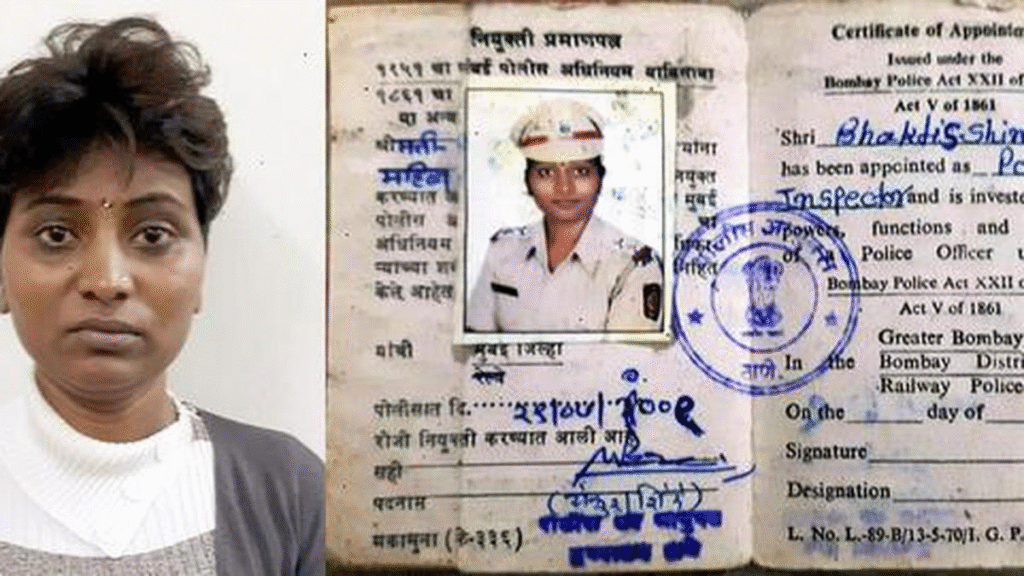 नियुक्ती प्रमाणपत्र
१९५१ चा मुंबई पोलीस अधिनियम बाविसावा
१८६१ चा
या अन्व
श्रीमती
यांना
नियुक्त
करण्यात
मुंबई
पोलीस अ
चा
अधिनियम
प्याच्या शर
निहित
केले आहेत
यांची
मुंबई जिल्हा
रेल्वे
पोलीसात दि. २९/०५/२००९
रोजी नियुक्ती करण्यात आली आहे
सही
पदनाम
मकामुना (के-३३६)
Certificate of Appointm
Issued under the
Bombay Police Act XXII of
Act V of 1861
Shri Bhakti S. Shin
has been appointed as Po
Inspector and is investe
powers, functions and
of a Police Officer u
Bombay Police Act XXII o
Act V of 1861
Greater Bombay
In the Bombay Distri
Railway Police
On the day of
Signature
Designation
L. No. L.-89-B/13-5-70/I. G. P.
ठाणे